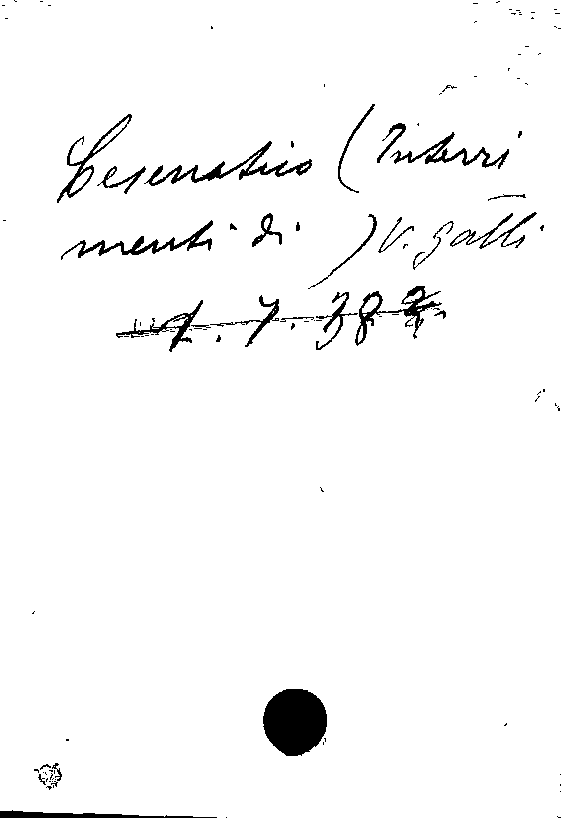 Cesenatico (Interri
menti di ) V. Gatti
1. 7. 38